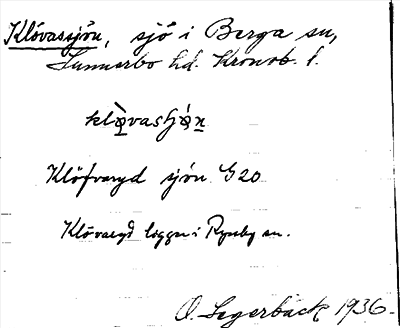 Klövasjön, sjö i Berga sn,
Sunnerbo hd. Kronob. l.
Klöfvaryd sjön G20
Klövaryd ligger i Ryssby sn.
O. Lagerbäck 1936.